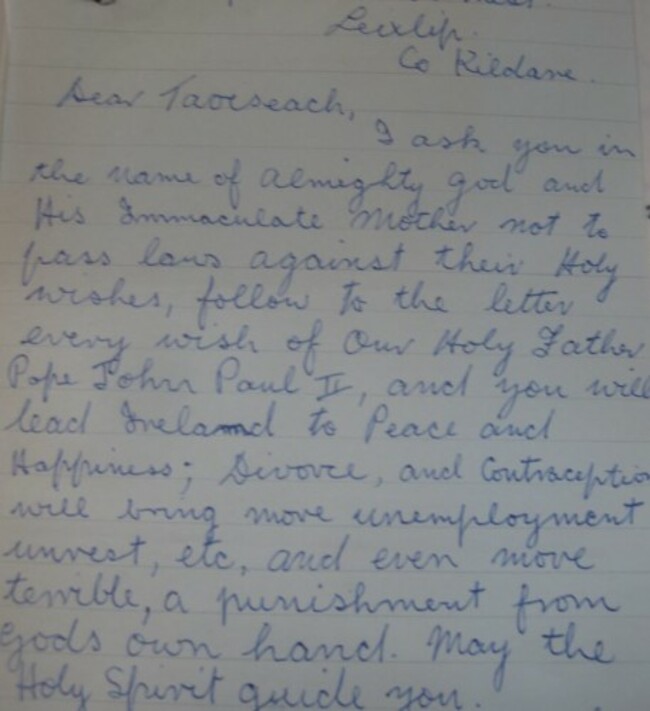 Leixlip.
Co Kildare.
Dear Taoiseach,
I ask you in
the name of almighty god and
His Immaculate Mother not to
pass laws against their Holy
wishes, follow to the letter
every wish of Our Holy Father
Pope John Paul II, and you will
lead Ireland to Peace and
Happiness; Divorce, and Contraception
will bring more unemployment
unrest, etc, and even more
terrible, a punishment from
gods own hand. May the
Holy Spirit guide you.